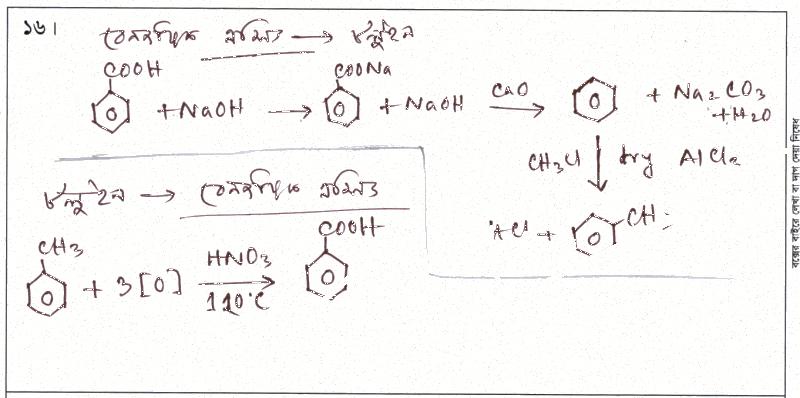 ১৬। বেনজয়িক এসিড → টলুইন
COOH COONa
+ NaOH → + NaOH CaO → + Na2CO3
+ H2O
CH3Cl dry AlCl3
HCl + CH3
টলুইন → বেনজয়িক এসিড
CH3 + 3[O] HNO3 → COOH
110°C
বক্সের বাইরে লেখা বা দাগ দেয়া নিষেধ